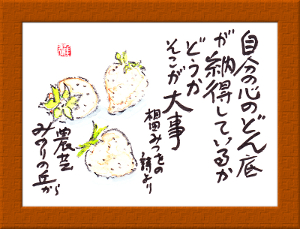 自分の心のどん底
が納得しているか
どうか
そこが大事
相田みつをの
詩より
農芸
みのりの丘から